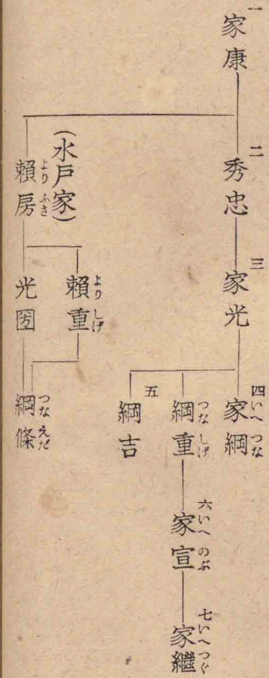 一
家康
二
秀忠
三
家光
四
家綱
いへつな
綱重
つなしげ
六
家宣
いへのぶ
七
家繼
いへつぐ
五
綱吉
(水戸家)
賴房
よりふさ
賴重
よりしげ
光圀
綱條
つなえだ